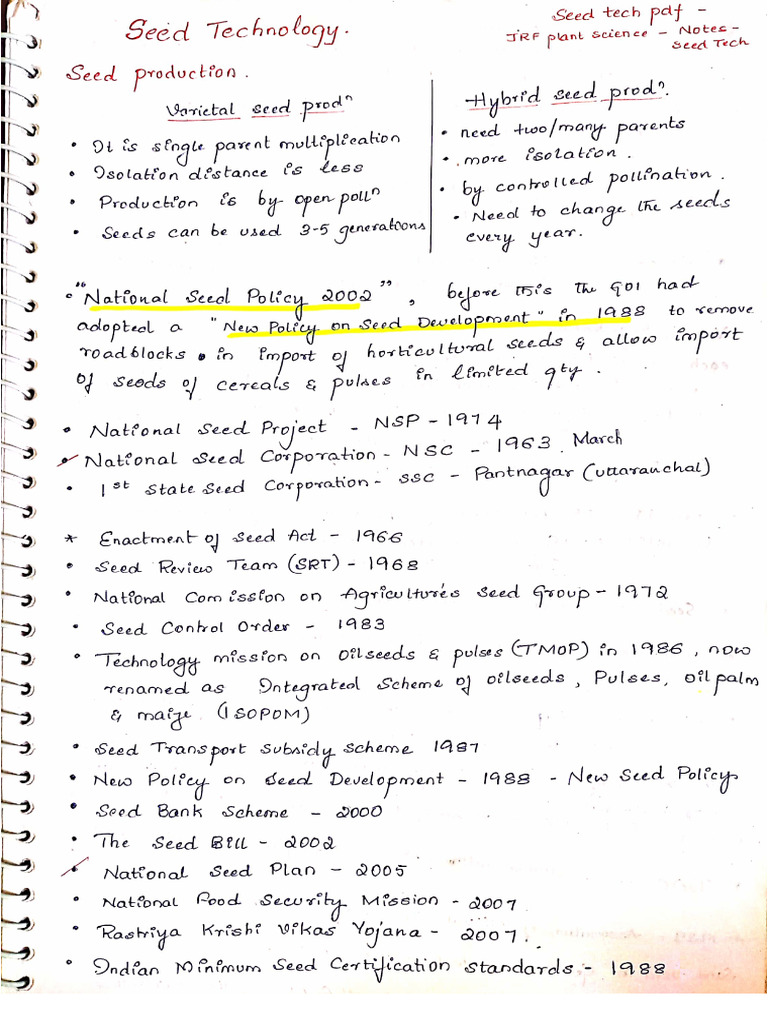 Seed Technology.
Seed tech pdf -
JRF plant science - Notes -
Seed Tech
Seed production.
Varietal seed prodⁿ
• It is single parent multiplication
• Isolation distance is less
• Production is by open pollⁿ
• Seeds can be used 3-5 generations
Hybrid seed prodⁿ.
• need two/many parents
• more isolation.
• by controlled pollination.
• Need to change the seeds
every year.
• "National Seed Policy 2002", before this the GOI had
adopted a "New Policy on Seed Development" in 1988 to remove
roadblocks in import of horticultural seeds & allow import
of seeds of cereals & pulses in limited qty.
• National Seed Project - NSP - 1974
• National Seed Corporation - NSC - 1963 March
• 1st State Seed Corporation - SSC - Pantnagar (Uttaranchal)
* Enactment of Seed Act - 1966
• Seed Review Team (SRT) - 1968
• National Comission on Agriculture's Seed Group - 1972
• Seed Control Order - 1983
• Technology mission on oilseeds & pulses (TMOP) in 1986, now
renamed as Integrated Scheme of oilseeds, Pulses, oil palm
& maize (ISOPOM)
• Seed Transport Subsidy Scheme 1987
• New Policy on Seed Development - 1988 - New Seed Policy
• Seed Bank Scheme - 2000
• The Seed Bill - 2002
• National Seed Plan - 2005
• National Food Security Mission - 2007
• Rastriya Krishi Vikas Yojana - 2007.
• Indian Minimum Seed Certification Standards - 1988